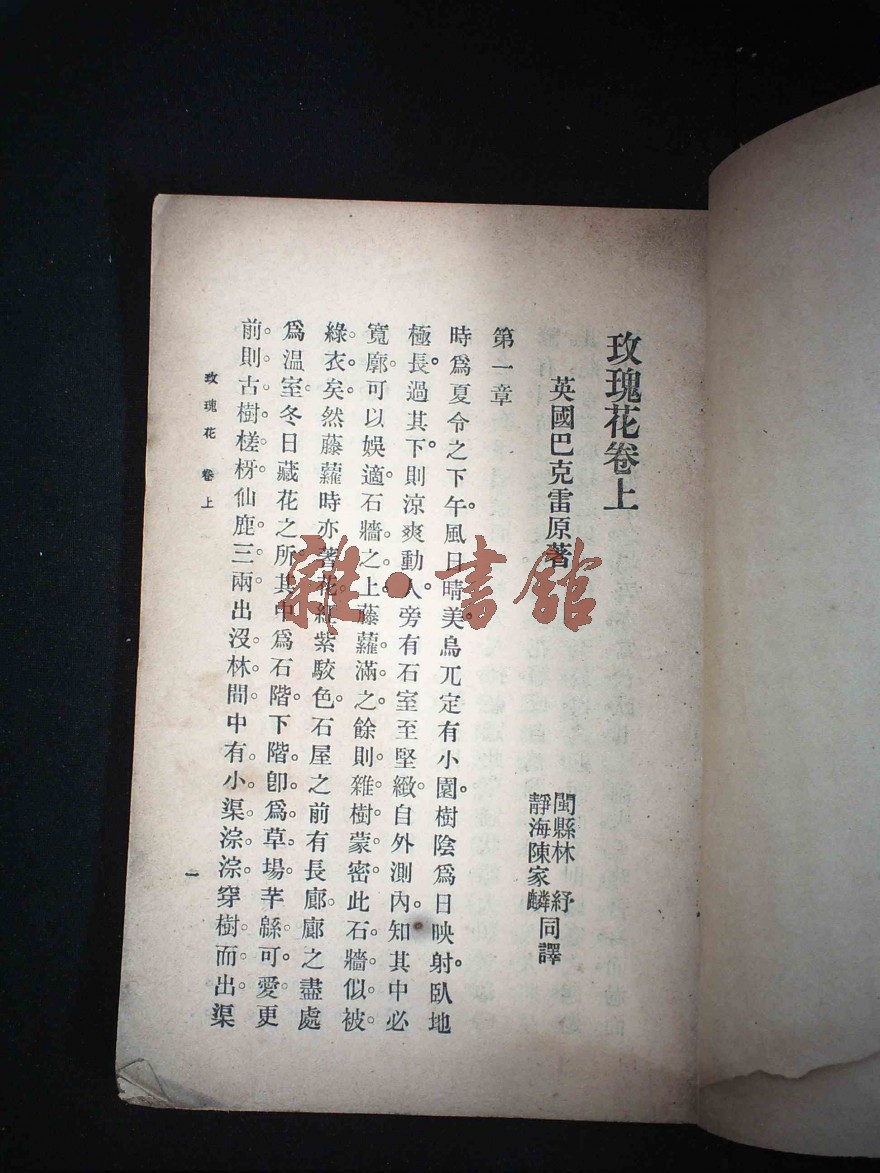 玫瑰花卷上
英國巴克雷原著
閩縣林 紓
靜海陳家麟
同譯
第一章
時爲夏令之下午。風日晴美。烏兀定有小園。樹陰爲日映射。臥地
極長。過其下。則涼爽動人。旁有石室至堅緻。自外測內。知其中必
寬廓。可以娛適。石牆之上。藤蘿滿之。餘則雜樹蒙密。此石牆似被
綠衣矣。然藤蘿時亦著花。紅紫駮色。石屋之前。有長廊。廊之盡處
爲溫室。冬日藏花之所。其中爲石階。下階。卽爲草場。芊緜可愛。更
前。則古樹槎枒。仙鹿三兩出沒林間。中有小渠。淙淙穿樹而出。渠
玫瑰花 卷上
一
雜·書館